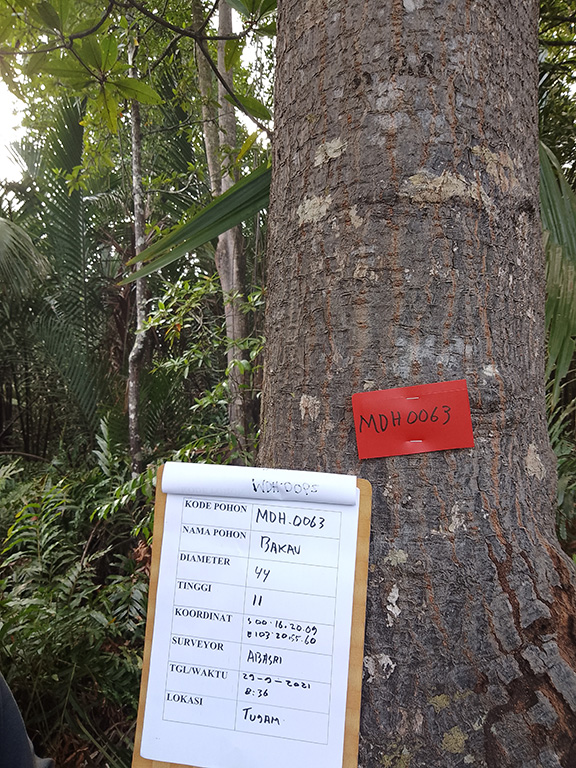 MDH0063
KODE POHON MDH.0063
NAMA POHON BAKAU
DIAMETER 44
TINGGI 11
KOORDINAT S 00.16.20.09
E 103.20.55.60
SURVEYOR ABASRI
TGL/WAKTU 29-9-2021
8:36
LOKASI